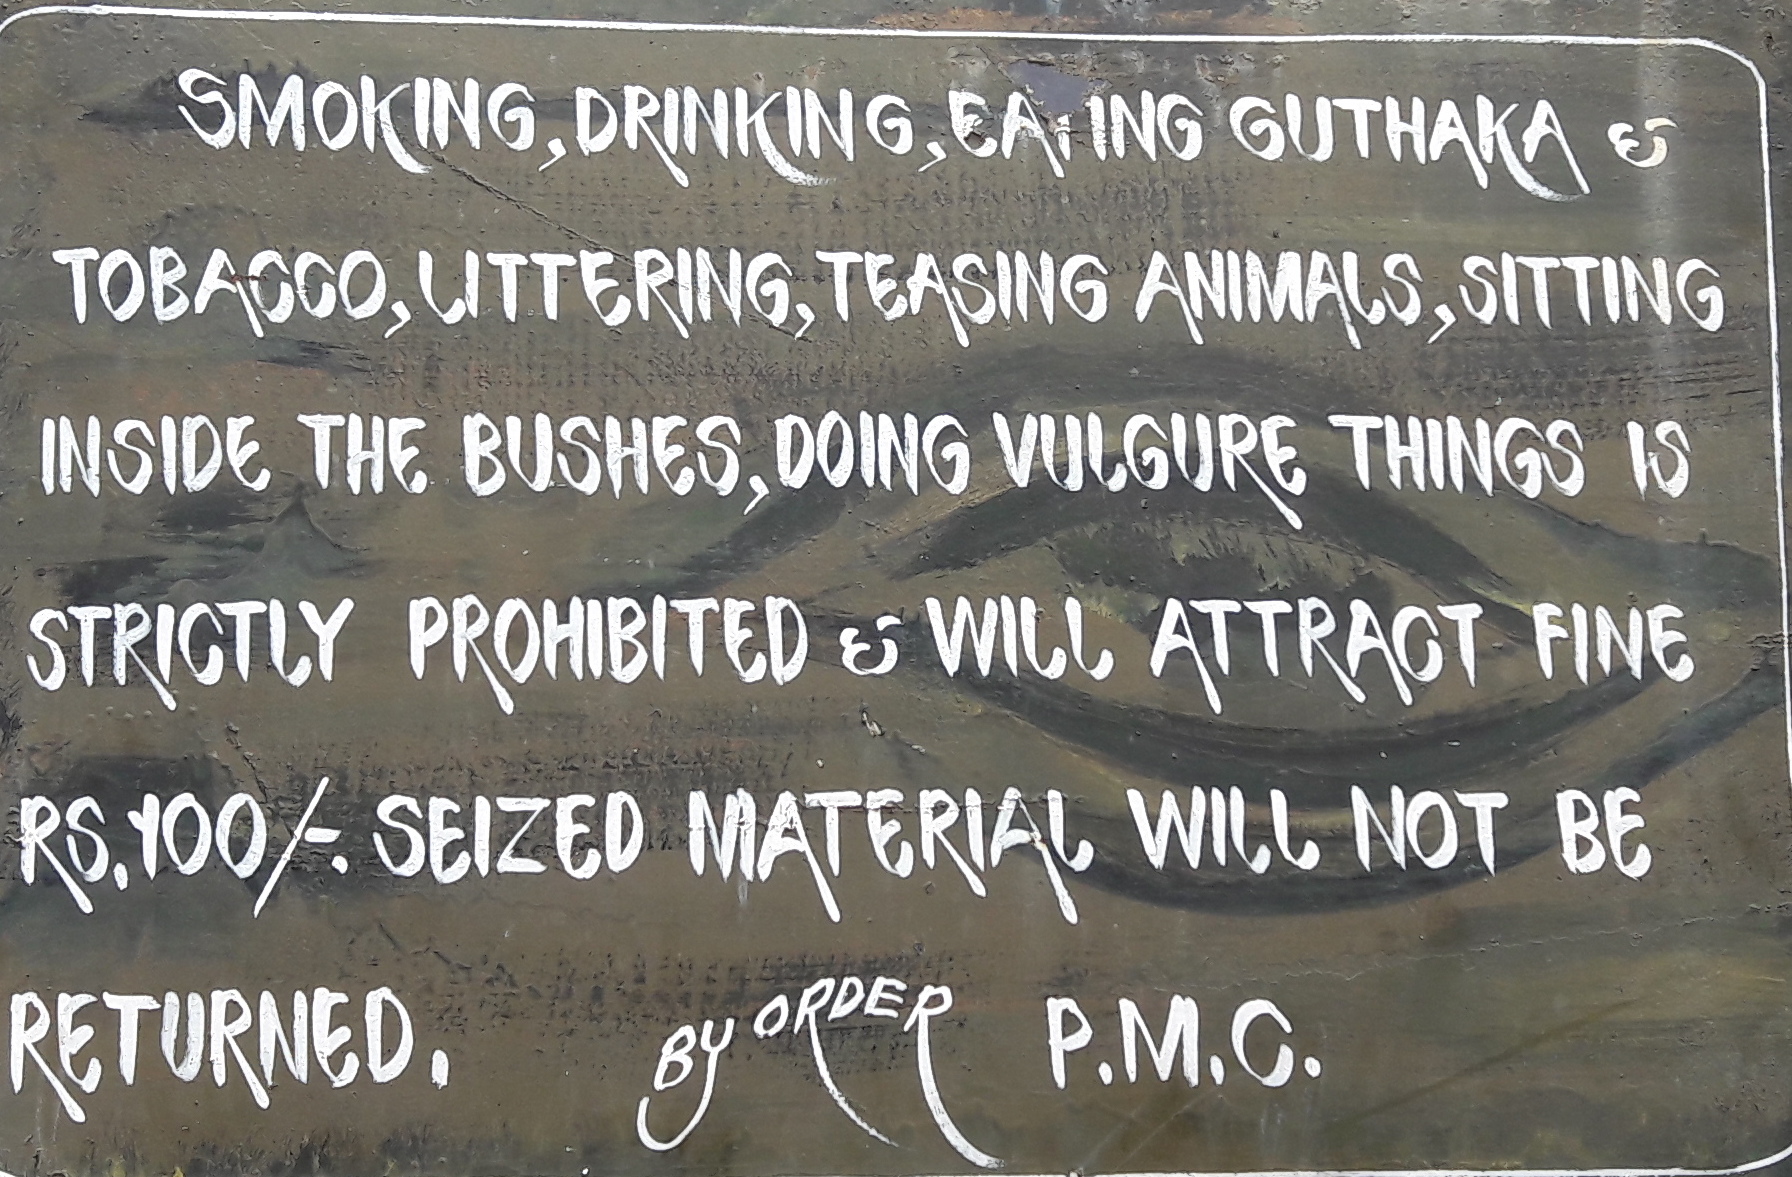 SMOKING, DRINKING, EATING GUTHAKA &
TOBACCO, LITTERING, TEASING ANIMALS, SITTING
INSIDE THE BUSHES, DOING VULGURE THINGS IS
STRICTLY PROHIBITED & WILL ATTRACT FINE
RS. 100/-. SEIZED MATERIAL WILL NOT BE
RETURNED. BY ORDER P.M.C.